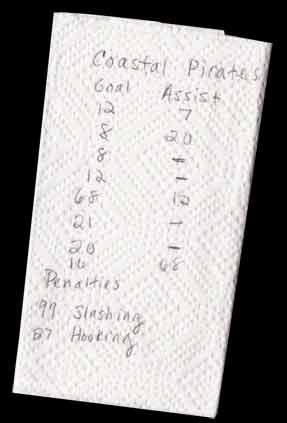 Coastal Pirates
Goal Assist
12 7
8 20
8 -
12 -
68 12
21 -
20 -
16 68
Penalties
99 Slashing
27 Hooking